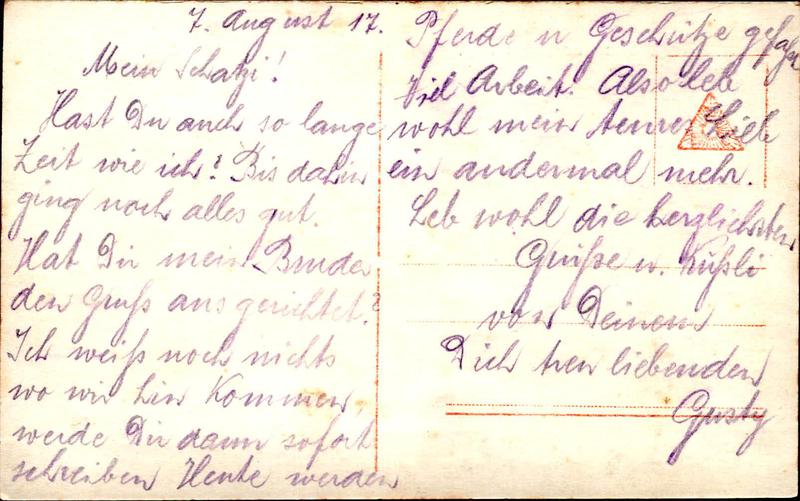 7. August 17.
Mein Schatzi!
Hast Du auch so lange
Zeit wie ich? Bis dahin
ging noch alles gut.
Hat Dir mein Bruder
den Gruß ausgerichtet?
Ich weiß noch nichts
wo wir hin kommen,
werde Dir dann sofort
schreiben Heute werden
Pferde u Geschütze gefahren
Viel Arbeit. Also leb
wohl mein teures Lieb
ein andermal mehr.
Leb wohl die herzlichsten
Grüße u. Küßli
von Deinem
Dich treu liebenden
Gusty